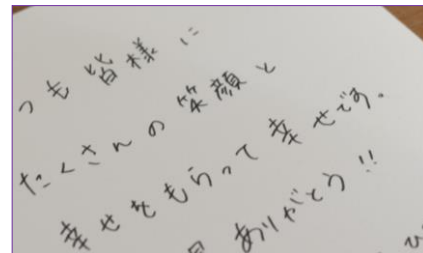 つも皆様に
たくさんの笑顔と
幸せをもらって幸せです。
ありがとう!!